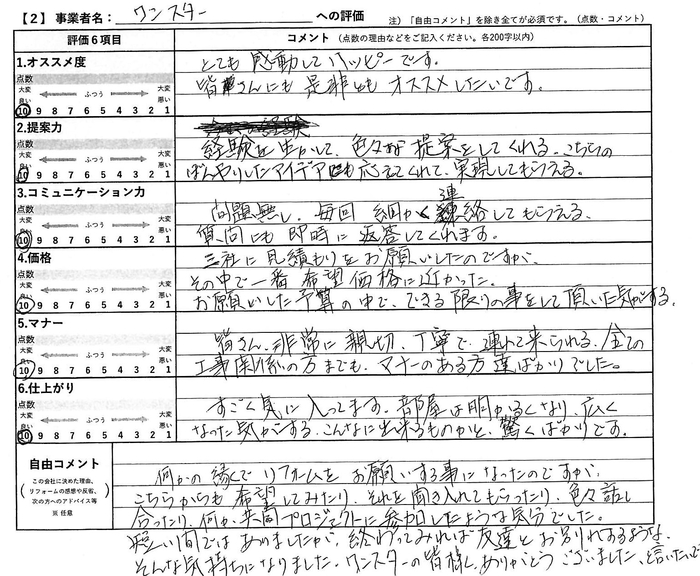 【2】事業者名: ワンスター への評価 注）「自由コメント」を除き全てが必須です。（点数・コメント）
評価6項目 コメント（点数の理由などをご記入ください。各200字以内）
1.オススメ度
点数
大変良い ふつう 大変悪い
10 9 8 7 6 5 4 3 2 1
とても感動してハッピーです。
皆さんにも是非ともオススメしたいです。
2.提案力
点数
大変良い ふつう 大変悪い
10 9 8 7 6 5 4 3 2 1
経験を生かして、色々な提案をしてくれる。こちらの
ぼんやりしたアイデアにも応えてくれて、実現してもらえる。
3.コミュニケーション力
点数
大変良い ふつう 大変悪い
10 9 8 7 6 5 4 3 2 1
問題無し、毎回細かく連絡してもらえる、
質問にも即時に返答してくれます。
4.価格
点数
大変良い ふつう 大変悪い
10 9 8 7 6 5 4 3 2 1
三社に見積もりをお願いしたのですが、
その中で一番希望価格に近かった。
お願いした予算の中で、できる限りの事をして頂いた気がする。
5.マナー
点数
大変良い ふつう 大変悪い
10 9 8 7 6 5 4 3 2 1
皆さん、非常に親切、丁寧で、連れて来られる、全ての
工事関係の方までも、マナーのある方達ばかりでした。
6.仕上がり
点数
大変良い ふつう 大変悪い
10 9 8 7 6 5 4 3 2 1
すごく気に入ってます。部屋は明かるくなり、広く
なった気がする。こんなに出来るものかと、驚くばかりです。
自由コメント
この会社に決めた理由、
リフォームの感想や反省、
次の方へのアドバイス等
※ 任意
何かの縁でリフォームをお願いする事になったのですが、
こちらからも希望してみたり、それを聞き入れてもらったり、色々話し
合ったり、何か、共同プロジェクトに参加したような気分でした。
短い間ではありましたが、終わってみれば友達とお別れするような、
そんな気持ちになりました。ワンスターの皆様、ありがとうございました、と言いたいです